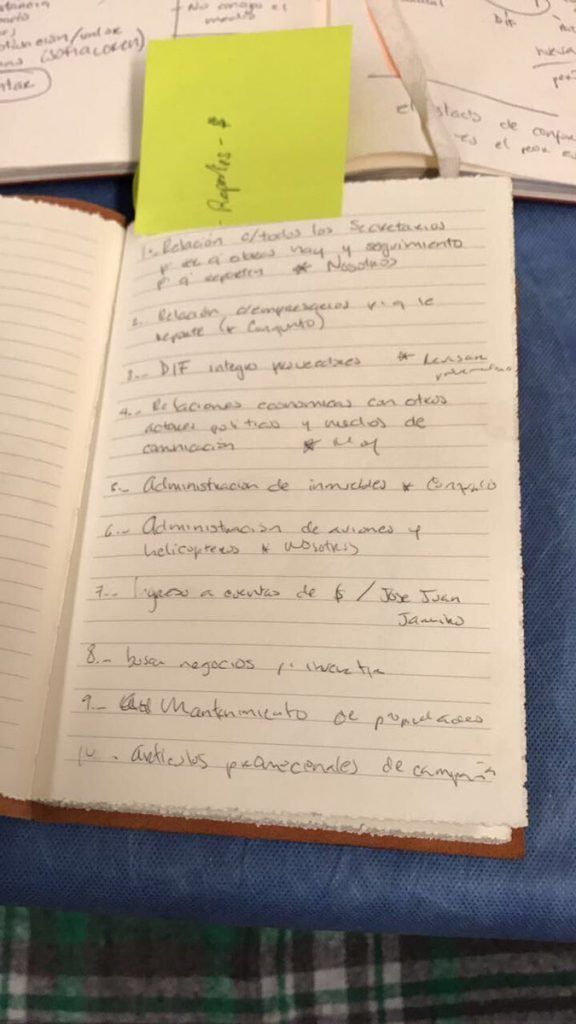 No conozco el
medio
DIF
el estado de
es el peor
Reportes - $
1.- Relación c/todos los Secretarios
p' ver q' obras hay y seguimiento
p' q' reporten * Nosotros
2. Relación c/empresarios p' q' le
reporte (* Conjunto)
3.- DIF integro proveedores *
4.- Relaciones economicas con otros
actores politicos y medios de
comunicación *
5.- Administración de inmuebles *
6.- Administración de aviones y
helicopteros * nosotros
7.- Ingreso a cuentas de $ / Jose Juan
8.- buscar negocios p. invertir
9.- Mantenimiento de propiedades
10. Artículos promocionales de campaña